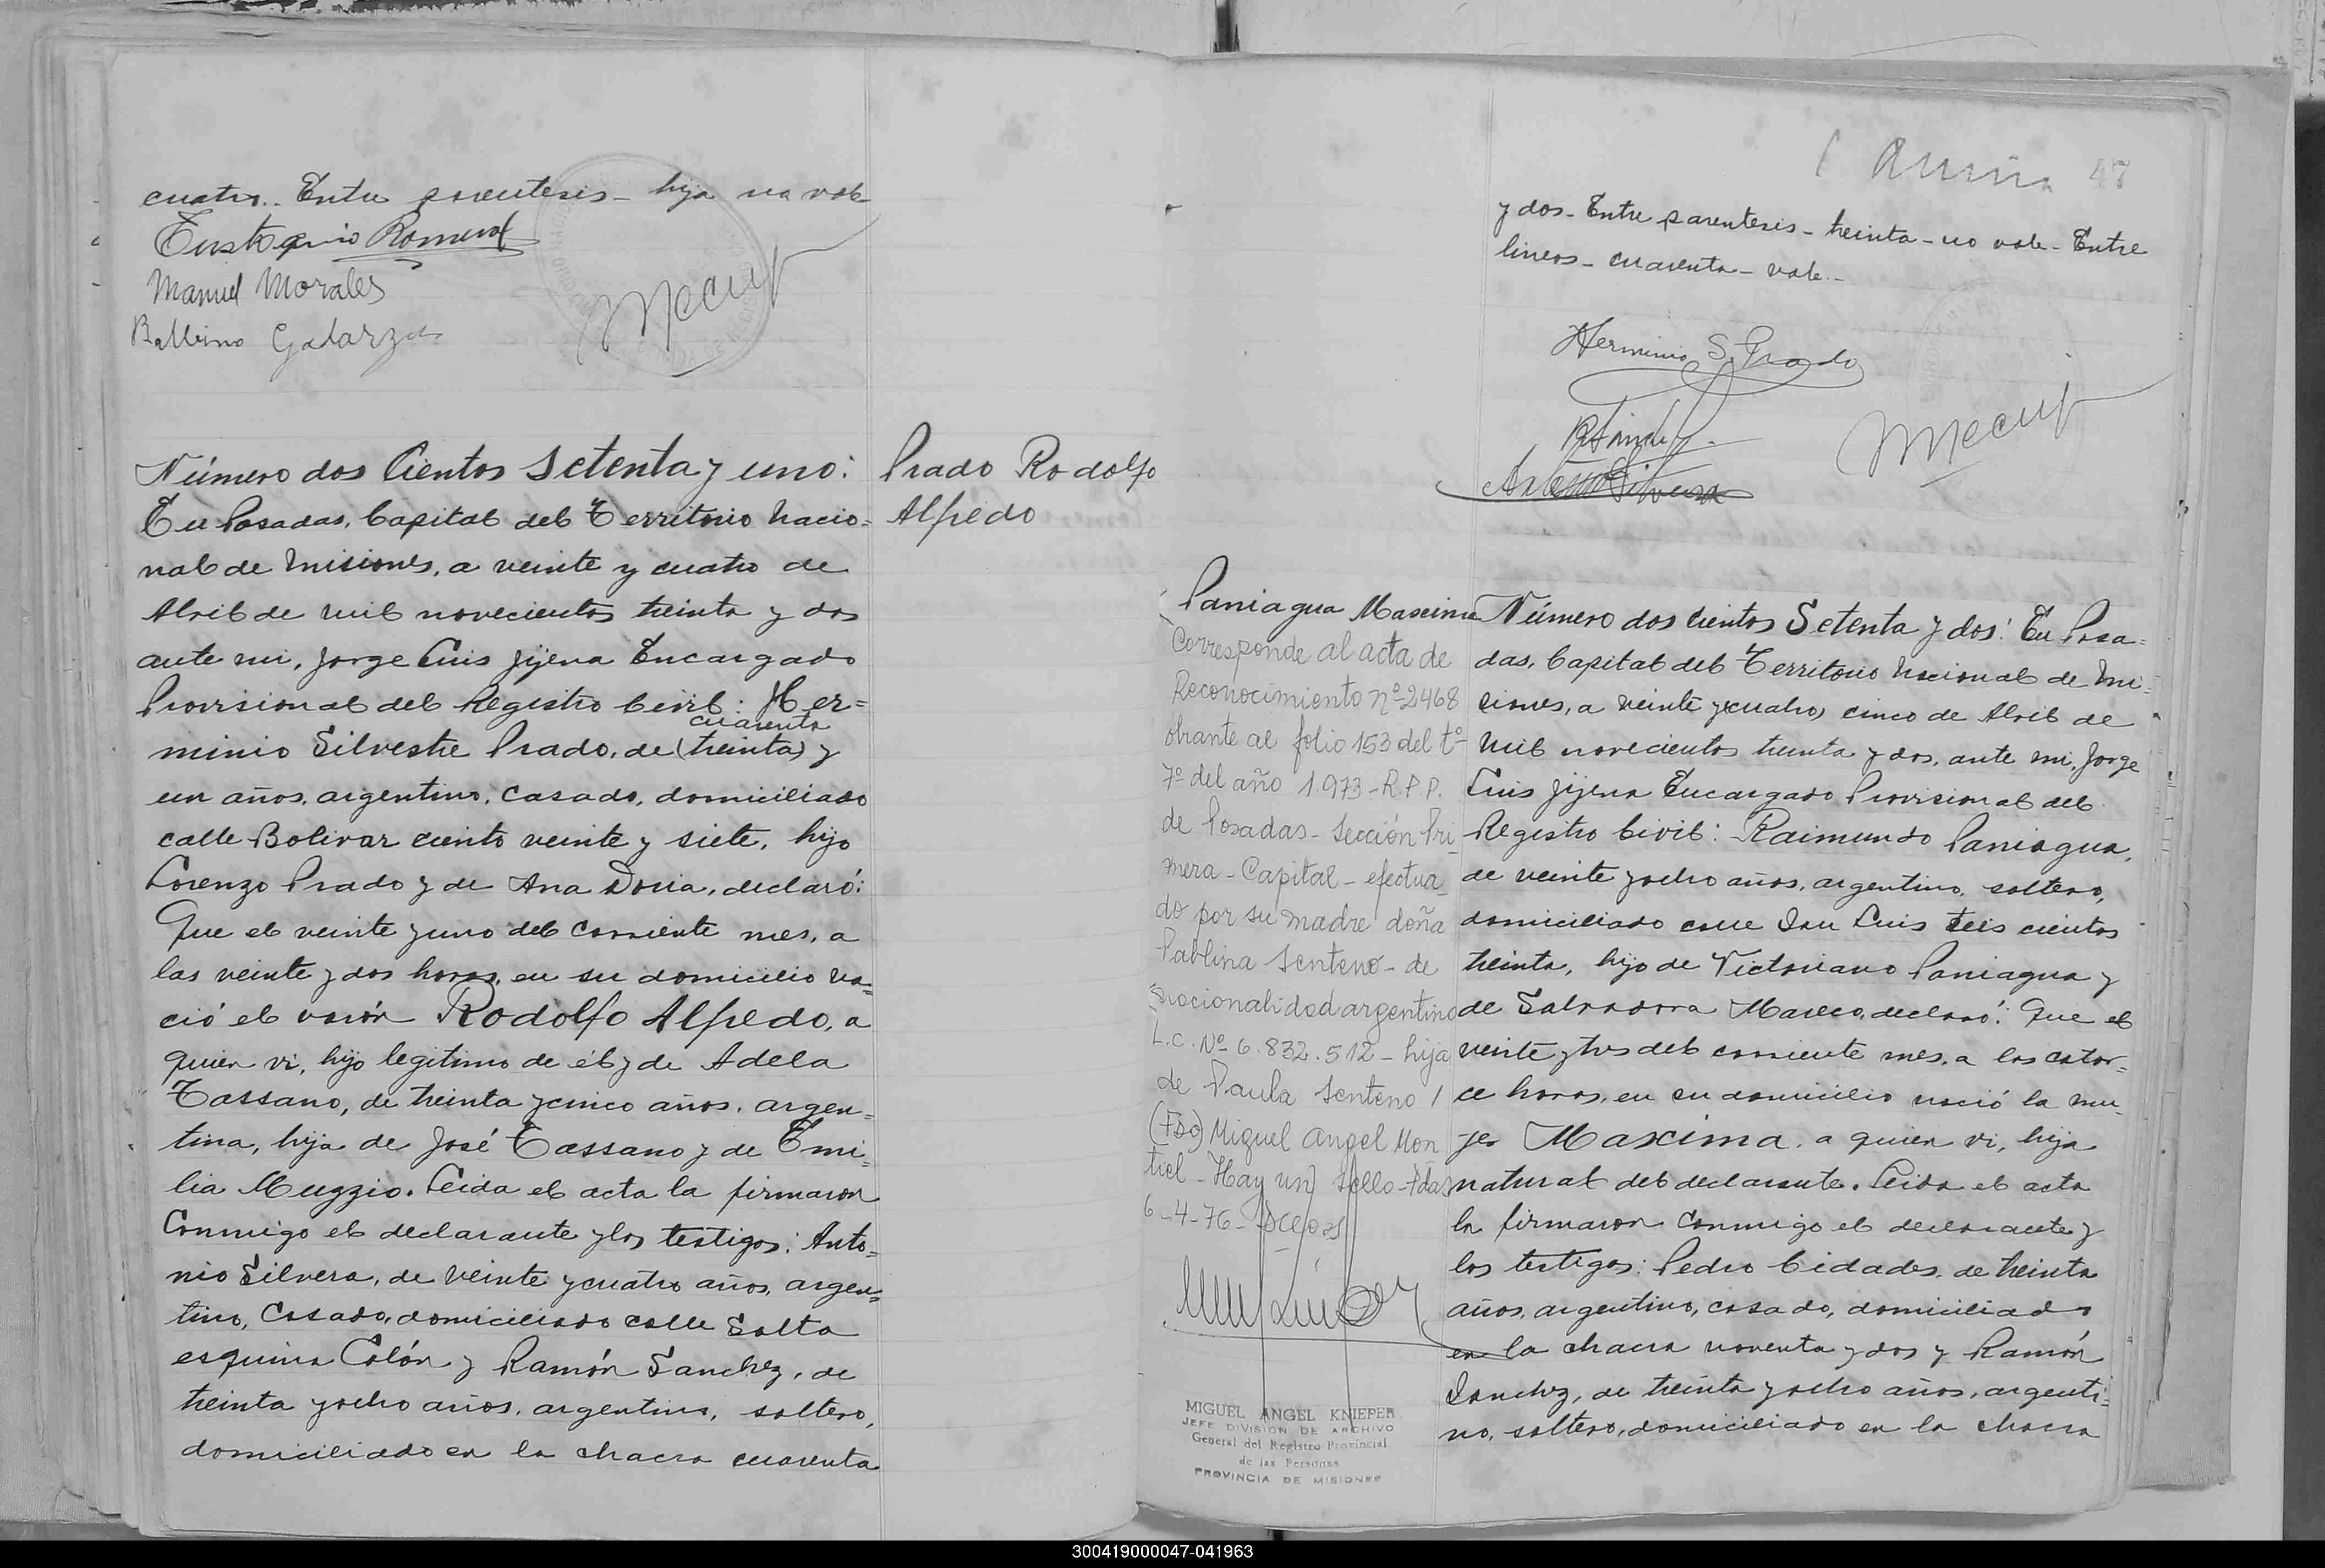 cuatro.. Entre parentesis - hija no vale
Eustaquio Romero
Manuel Morales
Balbino Galarza
Número dos Cientos Setenta y uno:
En Posadas, Capital del Territorio Nacio=
nal de Misiones, a veinte y cuatro de
Abril de mil novecientos treinta y dos
ante mi, Jorge Luis Jijena Encargado
Provisional del Registro Civil: Her=
cuarenta
minio Silvestre Prado, de (treinta) y
un años, argentino, casado, domiciliado
calle Bolivar ciento veinte y siete, hijo
Lorenzo Prado y de Ana Doria, declaró:
Que el veinte y uno del corriente mes, a
las veinte y dos horas, en su domicilio na=
ció el varón Rodolfo Alfredo, a
quien vi, hijo legitimo de él y de Adela
Tassano, de treinta y cinco años, argen=
tina, hija de José Tassano y de Emi=
lia Muzzio. Leida el acta la firmaron
Conmigo el declarante y los testigos: Anto=
nio Silvera, de veinte y cuatro años, argen=
tino, Casado, domiciliado calle Salta
esquina Colón y Ramón Sanchez, de
treinta y ocho años, argentino, soltero,
domiciliado en la chacra cuarenta
Prado Rodolfo
Alfredo
47
y dos - Entre parentesis - treinta - no vale - Entre
lineas - cuarenta - vale. -
Herminio S. Prado
Antonio Silvera
Paniagua Maxima
Corresponde al acta de
Reconocimiento nº 2468
obrante al folio 153 del tº
7º del año 1.973 - R.P.P.
de Posadas - Sección Pri
mera - Capital - efectua
do por su madre doña
Pablina Senteno - de
nacionalidad argentina
L.C. Nº 6.832.512 - hija
de Paula Senteno /
(Fdo) Miguel Angel Mon
tiel - Hay un sello - Pdas
6-4-76-
MIGUEL ANGEL KNIEPER
JEFE DIVISION DE ARCHIVO
General del Registro Provincial
de las Personas
PROVINCIA DE MISIONES
Número dos cientos Setenta y dos: En Posa=
das, Capital del Territorio Nacional de Mi=
siones, a veinte y cuatro, cinco de Abril de
mil novecientos treinta y dos, ante mi, Jorge
Luis Jijena Encargado Provisional del
Registro Civil: Raimundo Paniagua,
de veinte y ocho años, argentino, soltero,
domiciliado calle San Luis seis cientos
treinta, hijo de Victoriano Paniagua y
de Salvadora Mareco, declaró: Que el
veinte y tres del corriente mes, a las cator=
ce horas, en su domicilio nació la mu=
jer Maxima, a quien vi, hija
natural del declarante. Leida el acta
la firmaron Conmigo el declarante y
los testigos: Pedro Cidades, de treinta
años, argentino, casado, domiciliado
en la chacra noventa y dos y Ramón
Sanchez, de treinta y ocho años, argenti=
no, soltero, domiciliado en la chacra
300419000047-041963